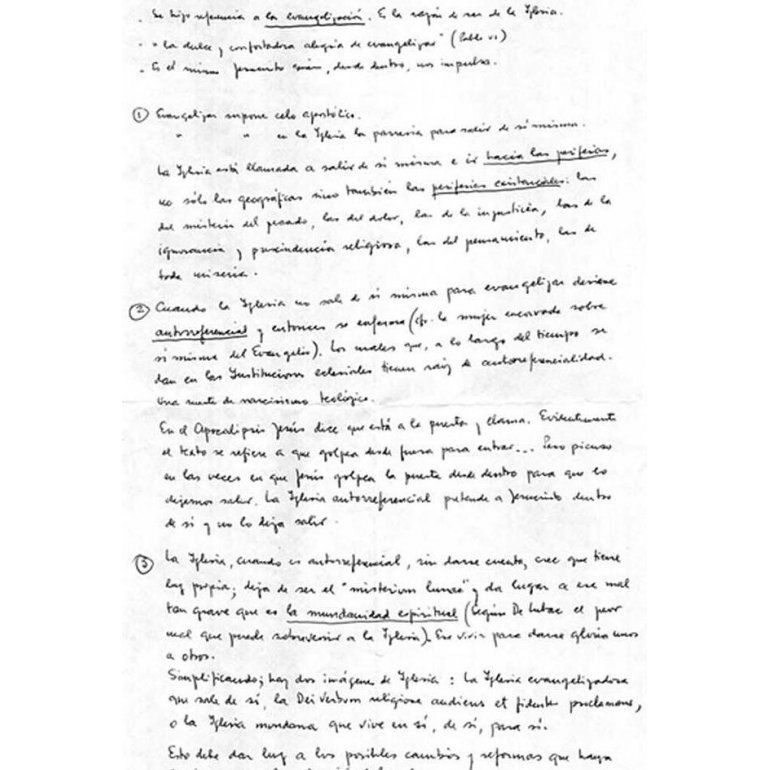 . Se hizo referencia a la evangelización. Es la razón de ser de la Iglesia.
. "la dulce y confortadora alegría de evangelizar" (Pablo VI)
. Es el mismo Jesucristo quien, desde dentro, nos impulsa.
① Evangelizar supone celo apostólico.
" " en la Iglesia la parresía para salir de sí misma.
La Iglesia está llamada a salir de sí misma e ir hacia las periferias,
no sólo las geográficas sino también las periferias existenciales: las
del misterio del pecado, las del dolor, las de la injusticia, las de la
ignorancia y prescindencia religiosa, las del pensamiento, las de
toda miseria.
② Cuando la Iglesia no sale de sí misma para evangelizar deviene
autorreferencial y entonces se enferma (cfr. la mujer encorvada sobre
sí misma del Evangelio). Los males que, a lo largo del tiempo, se
dan en las Instituciones eclesiales tienen raíz de autorreferencialidad.
una suerte de narcisismo teológico.
En el Apocalipsis Jesús dice que está a la puerta y llama. Evidentemente
el texto se refiere a que golpea desde fuera para entrar... Pero pienso
en las veces en que Jesús golpea la puerta desde dentro para que lo
dejemos salir. La Iglesia autorreferencial pretende a Jesucristo dentro
de sí y no lo deja salir.
③ La Iglesia, cuando es autorreferencial, sin darse cuenta, cree que tiene
luz propia; deja de ser el "misterium lunae" y da lugar a ese mal
tan grave que es la mundanidad espiritual (Según De Lubac el peor
mal que puede sobrevenir a la Iglesia). Ese vivir para darse gloria unos
a otros.
Simplificando; hay dos imágenes de Iglesia: La Iglesia evangelizadora
que sale de sí, la Dei Verbum religiose audiens et fidenter proclamans,
o la Iglesia mundana que vive en sí, de sí, para sí.
Esto debe dar luz a los posibles cambios y reformas que haya